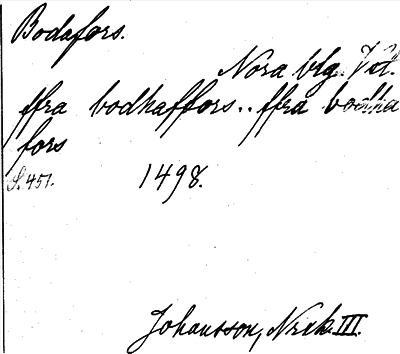 Bodafors.
Nora blg. Vstl.
ffra bodhaffors.. ffra bodha
fors
S. 451. 1498.
Johansson, Nerik. III.